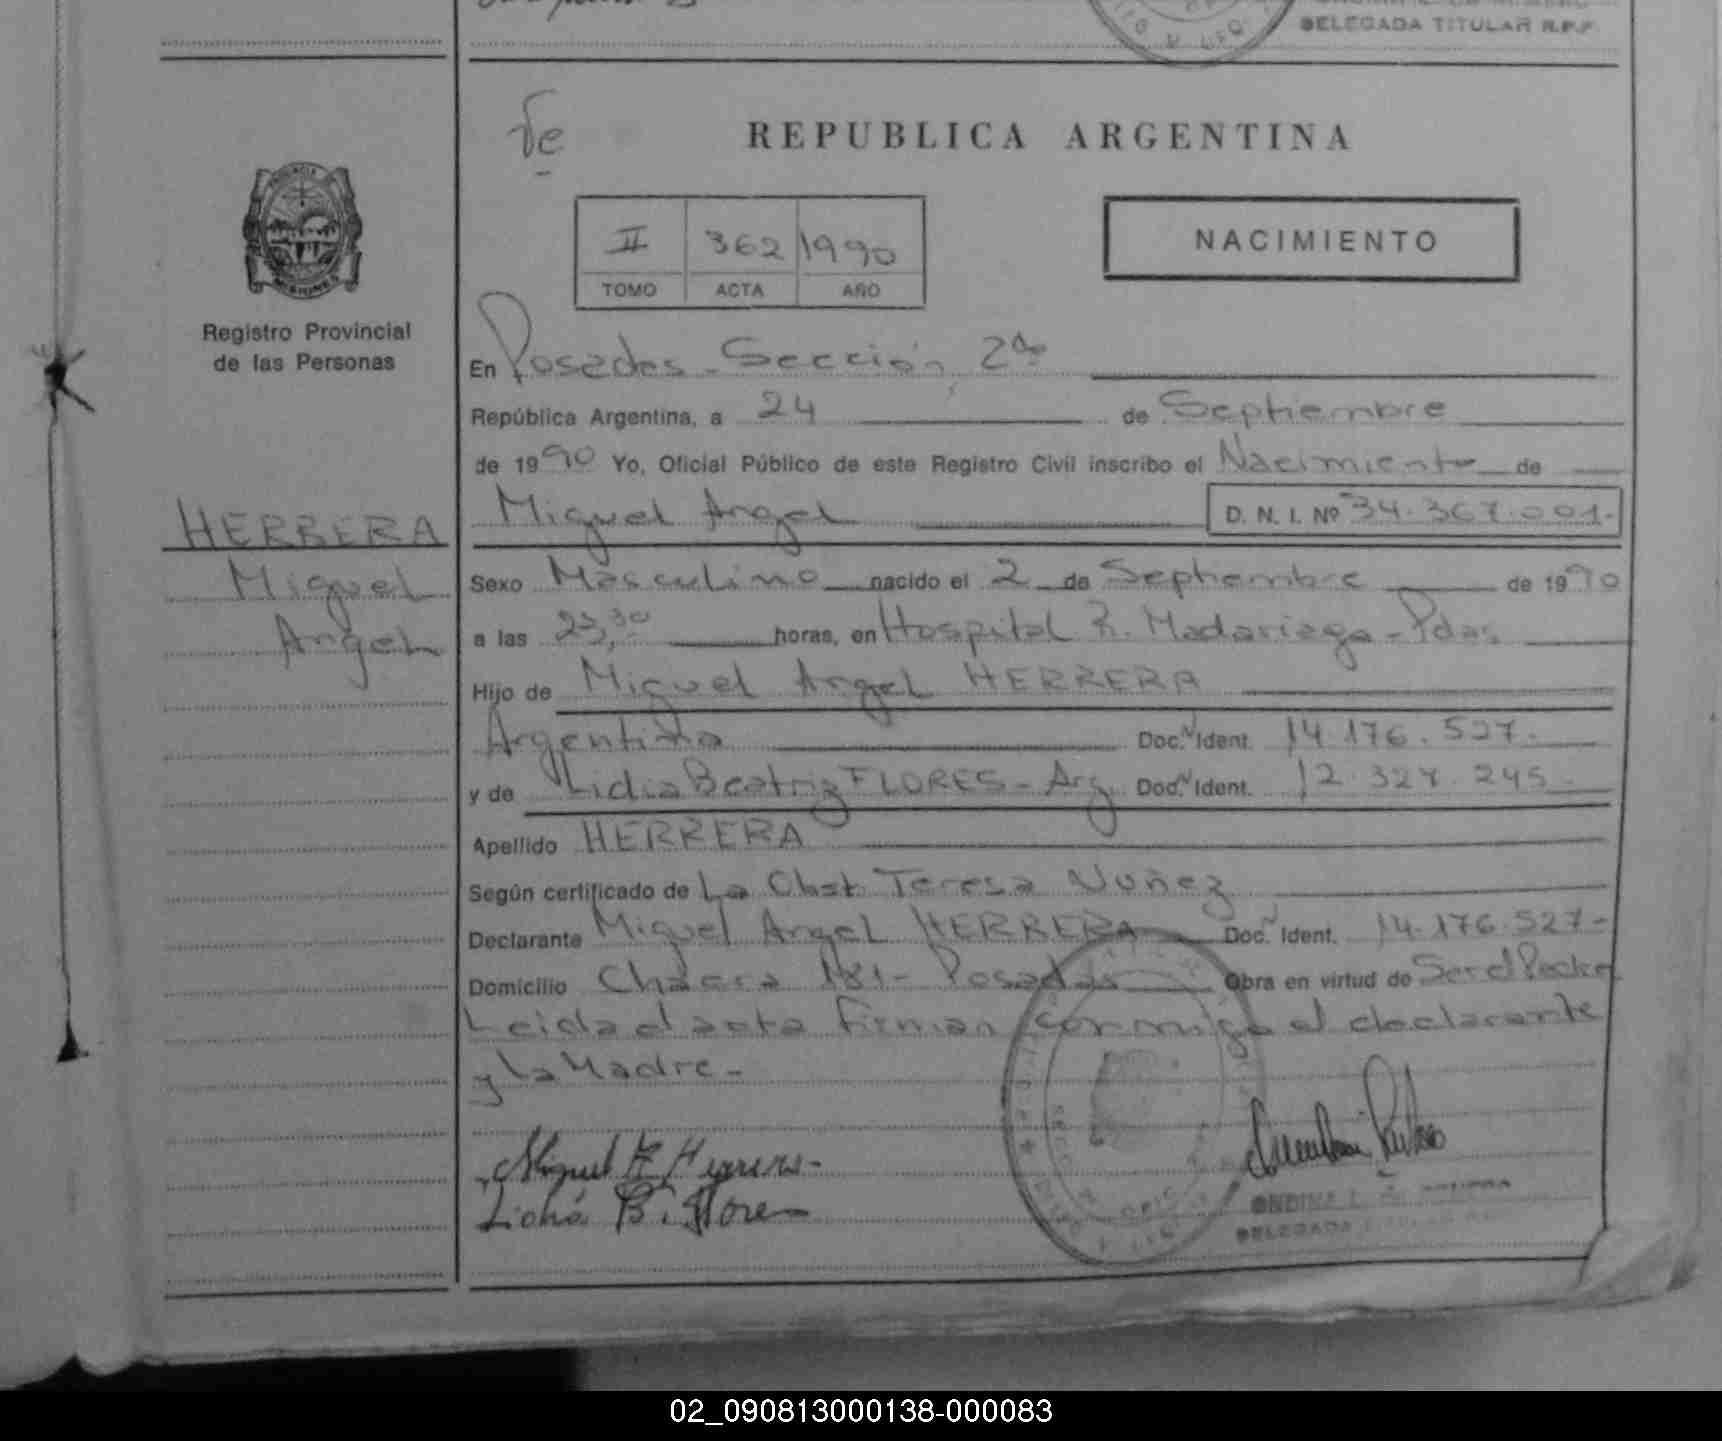 DELEGADA TITULAR R.P.P.
Ve
REPUBLICA ARGENTINA
II 362 1990
TOMO ACTA AÑO
NACIMIENTO
PROVINCIA
MISIONES
Registro Provincial
de las Personas
En Posadas - Sección 2da
República Argentina, a 24 de Septiembre
de 1990 Yo, Oficial Público de este Registro Civil inscribo el Nacimiento de
HERRERA
Miguel
Angel
Miguel Angel D. N. I. Nº 34.367.001.
Sexo Masculino nacido el 2 de Septiembre de 1990
a las 23,30 horas, en Hospital R. Madariaga - Pdas
Hijo de Miguel Angel HERRERA
Argentina Doc. N Ident. 14.176.527.
y de Lidia Beatriz FLORES - Arg. Doc. N Ident. 12.327.245
Apellido HERRERA
Según certificado de La Obst. Teresa Nuñez
Declarante Miguel Angel HERRERA Doc. N Ident. 14.176.527-
Domicilio Chacra 181 - Posadas Obra en virtud de Ser el Padre
Leida el acta firman conmigo el declarante
y La Madre -
Miguel A Herrera -
Lidia B. Flores
DELEGADA
02_090813000138-000083